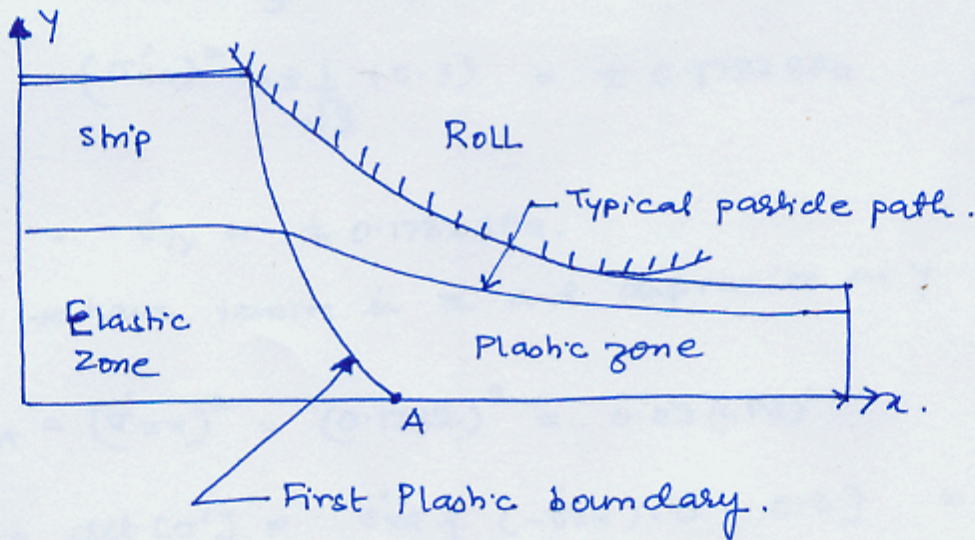 Y
Strip
Roll
Typical particle path.
Elastic
Zone
Plastic zone
A
x.
First Plastic boundary.